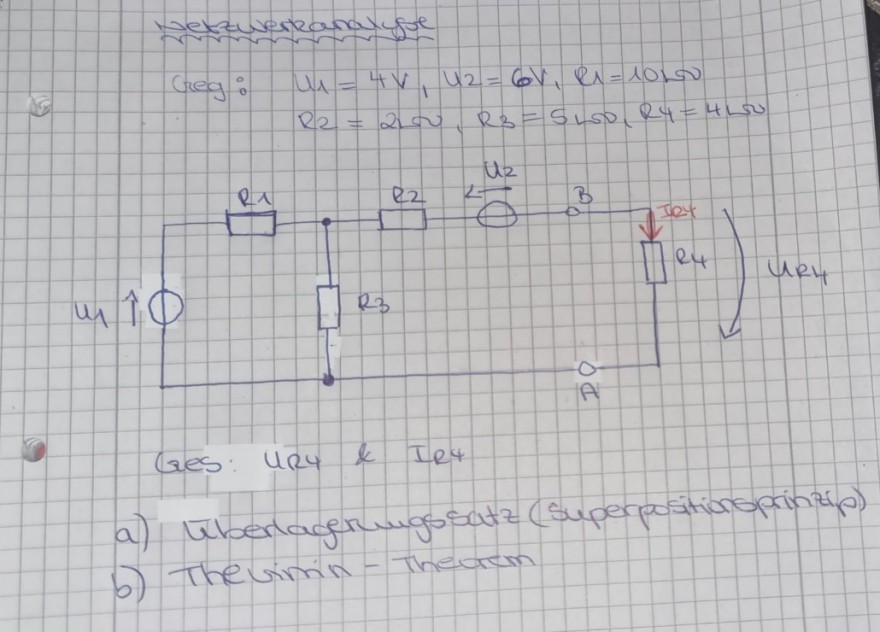 Netzwerkanalyse
Geg: U1 = 4V, U2 = 6V, R1 = 10kΩ
R2 = 2kΩ, R3 = 5kΩ, R4 = 4kΩ
U2
R1
R2
B
IR4
R4
UR4
U1
R3
A
Ges: UR4 & IR4
a) Überlagerungssatz (Superpositionsprinzip)
b) Thevinin - Theorem